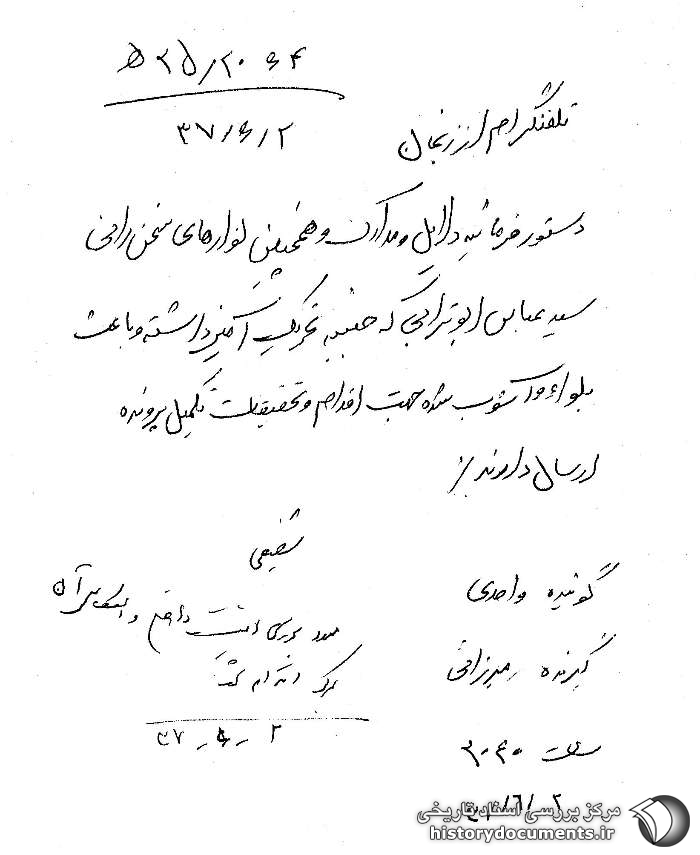 ۳۵/۲۰۶۴ ه
۳۷/۶/۲
تلفنگرام از زنجان
دستور فرمائید دلایل و مدارک و همچنین نوارهای سخن رانی
سید عباس ابوترابی که جنبه تحریک آمیز داشته و باعث
بلواء و آشوب شده جهت اقدام و تحقیقات تکمیل پرونده
ارسال دارند
شفیعی
گوینده واحدی
گیرنده میرزائی
و انعکاس آن
اقدام گشت
۳۷-۶-۲
ساعت
۶/۲
مرکز بررسی اسناد تاریخی
historydocuments.ir